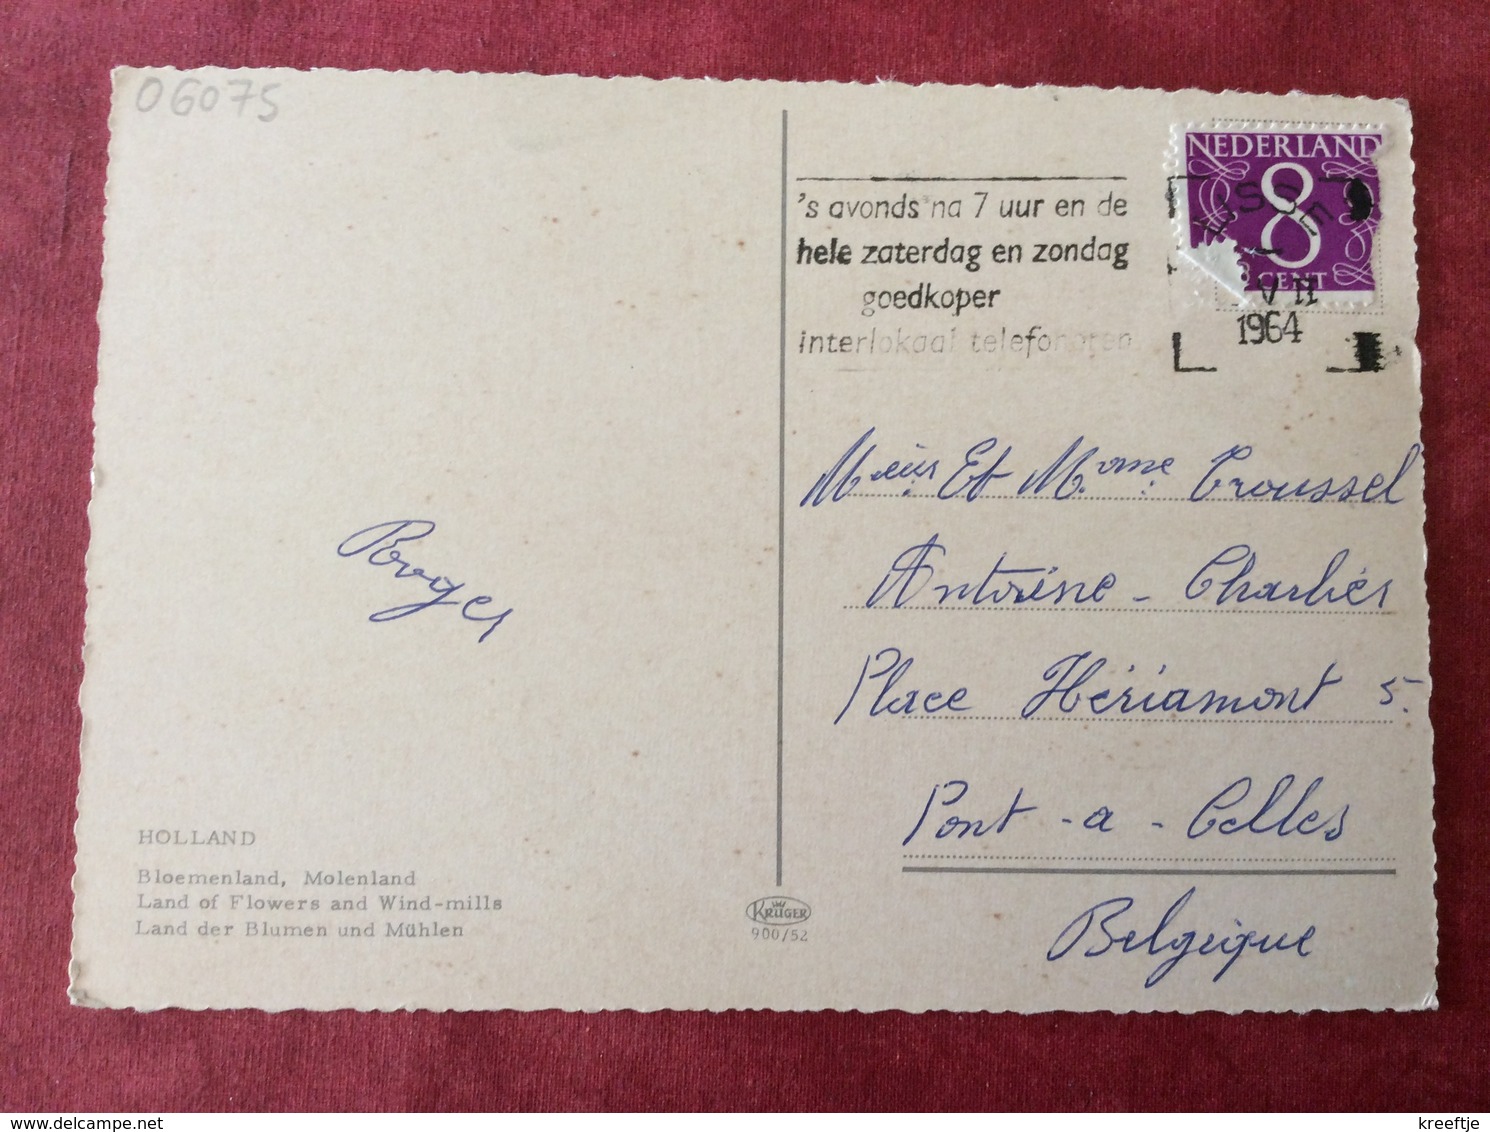 06075
NEDERLAND
8
CENT
LISSE
VII
1964
's avonds na 7 uur en de
hele zaterdag en zondag
goedkoper
interlokaal telefoneren
Mr eius Et M.ome Troussel
Antoine - Charlier
Place Hériamont 5.
Pont - a - Celles
Belgique
Roger
HOLLAND
Bloemenland, Molenland
Land of Flowers and Wind-mills
Land der Blumen und Mühlen
KRÜGER
900/52
kreeftje